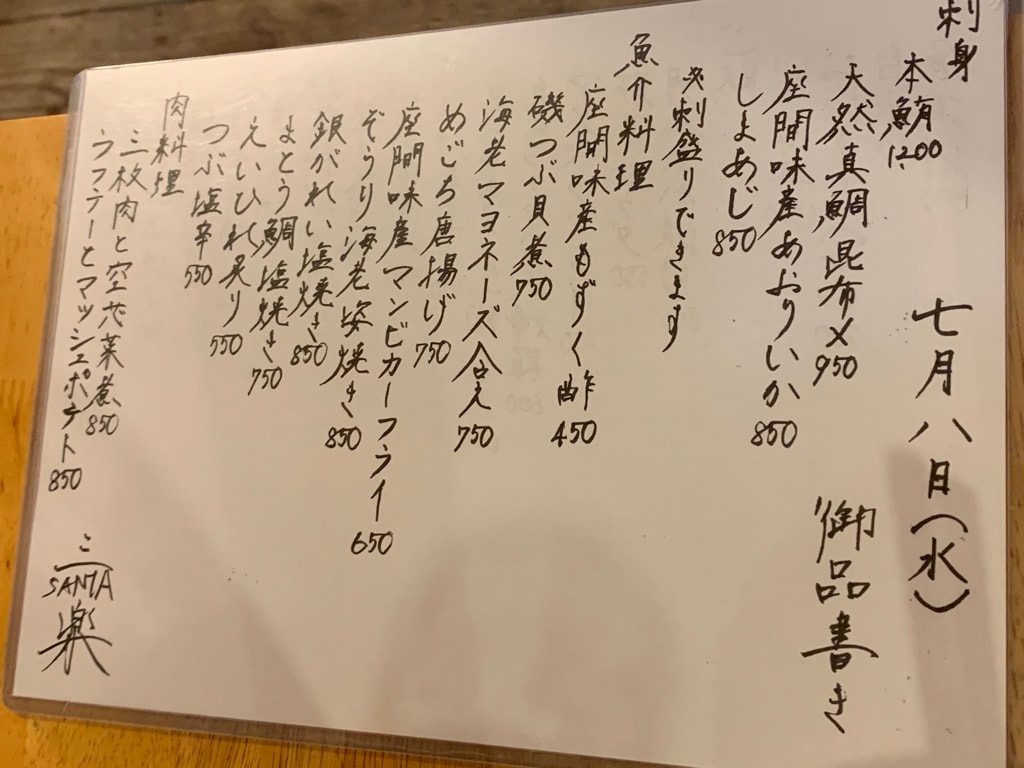 刺身
本鮪 1200
天然真鯛昆布〆 950
座間味産あおりいか 850
しまあじ 850
刺盛りできます
魚介料理
座間味産もずく酢 450
磯つぶ貝煮 750
海老マヨネーズ合え 750
めごち唐揚げ 750
座間味産マンビカーフライ 650
ぞうり海老姿焼き 850
銀がれい塩焼き 850
まとう鯛塩焼き 750
えいひれ炙り 550
つぶ塩辛 550
肉料理
三枚肉と空芯菜煮 850
ラフテーとマッシュポテト 850
七月八日(水)
御品書き
SANTA
楽